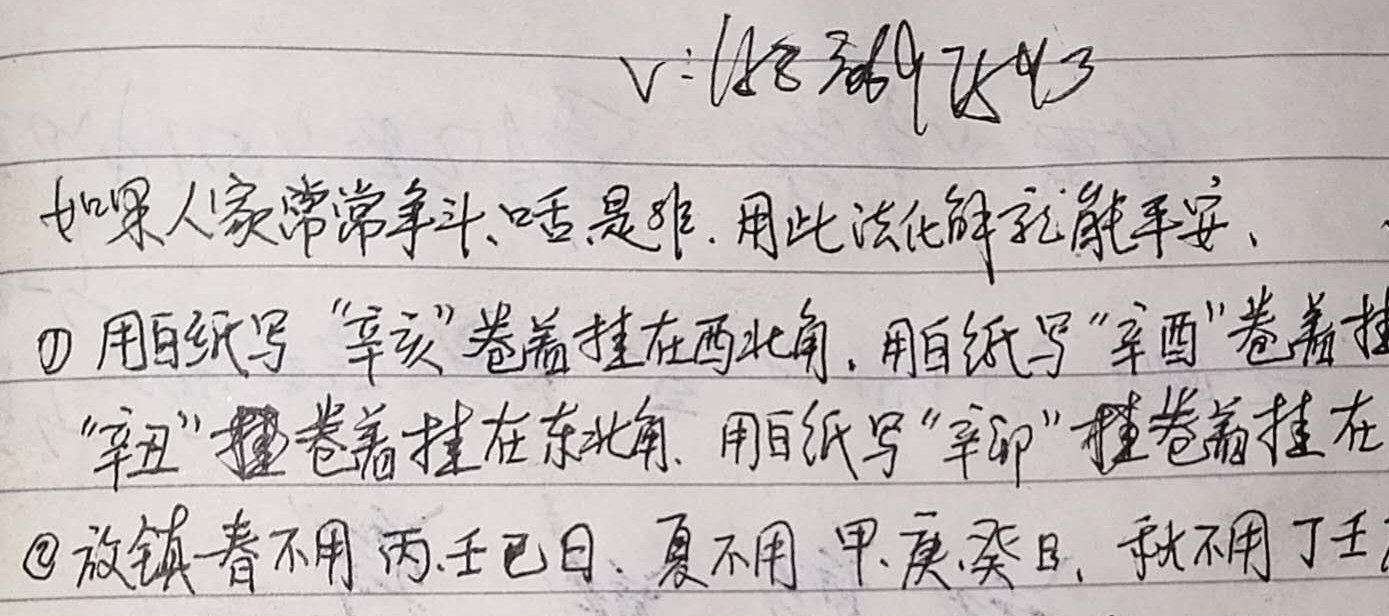 如果人家常常争斗、口舌是非.用此法化解就能平安、
① 用白纸写“辛亥”卷着挂在西北角.用白纸写“辛酉”卷着挂
“辛丑”挂卷着挂在东北角.用白纸写“辛卯”挂卷着挂在
②放镇春不用丙.壬巳日.夏不用甲.庚.癸日.秋不用丁壬